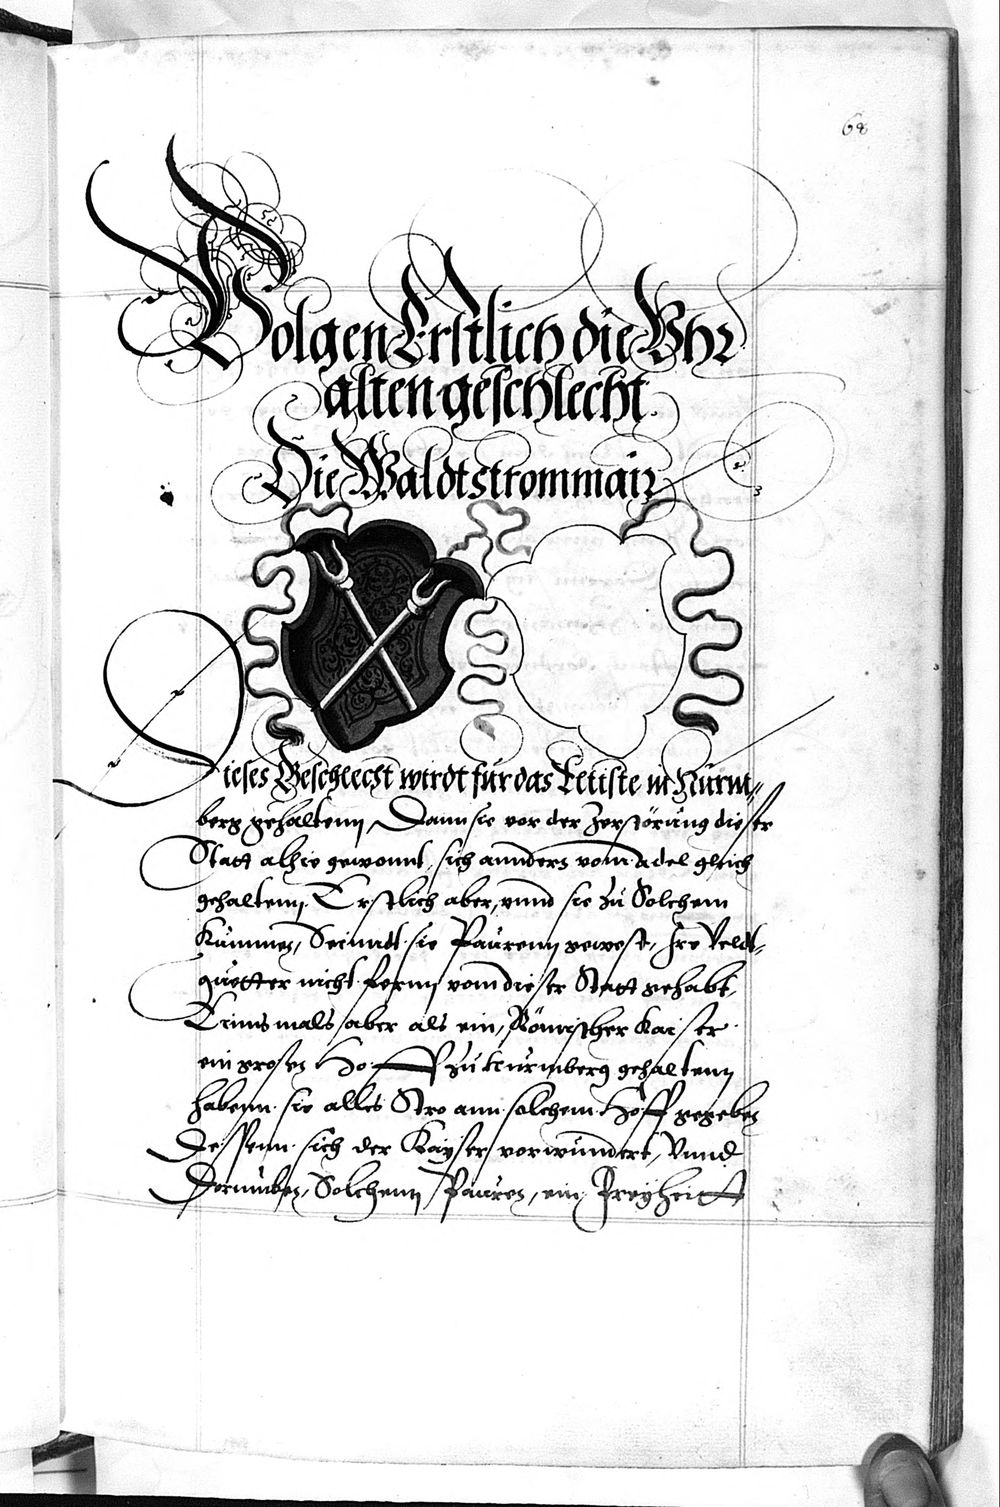 68
Volgen Erstlich die Vhr
alten geschlecht.
Die Waldtstrommair
Dieses Geschlecht wirdt für das Eeltiste in Nürm„
berg gehaltenn, Dann sie vor der Zerstörüng dieser
Statt alhie gewonnt, sich annders vom adel gleich
gehaltenn. Erstlich aber, vnnd sie zü Solchem
Kummen, Seinndt sie Paürenn gewest, Jre Veldt„
güetter nicht fernn vonn dieser Statt gehabt,
Einnsmals aber als ein, Römischer Kaiser
ein grosen Hoff zü Nürmberg gehaltenn
habenn sie alles Stro ann solchem Hoff gegeben
Dessenn sich der Kayser verwündert, Vnnd
Derumben, Solchenn Paüren, ein Freyheitt